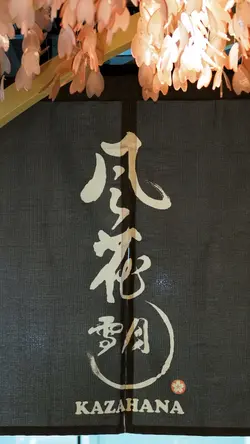 風
花
雪月
KAZAHANA